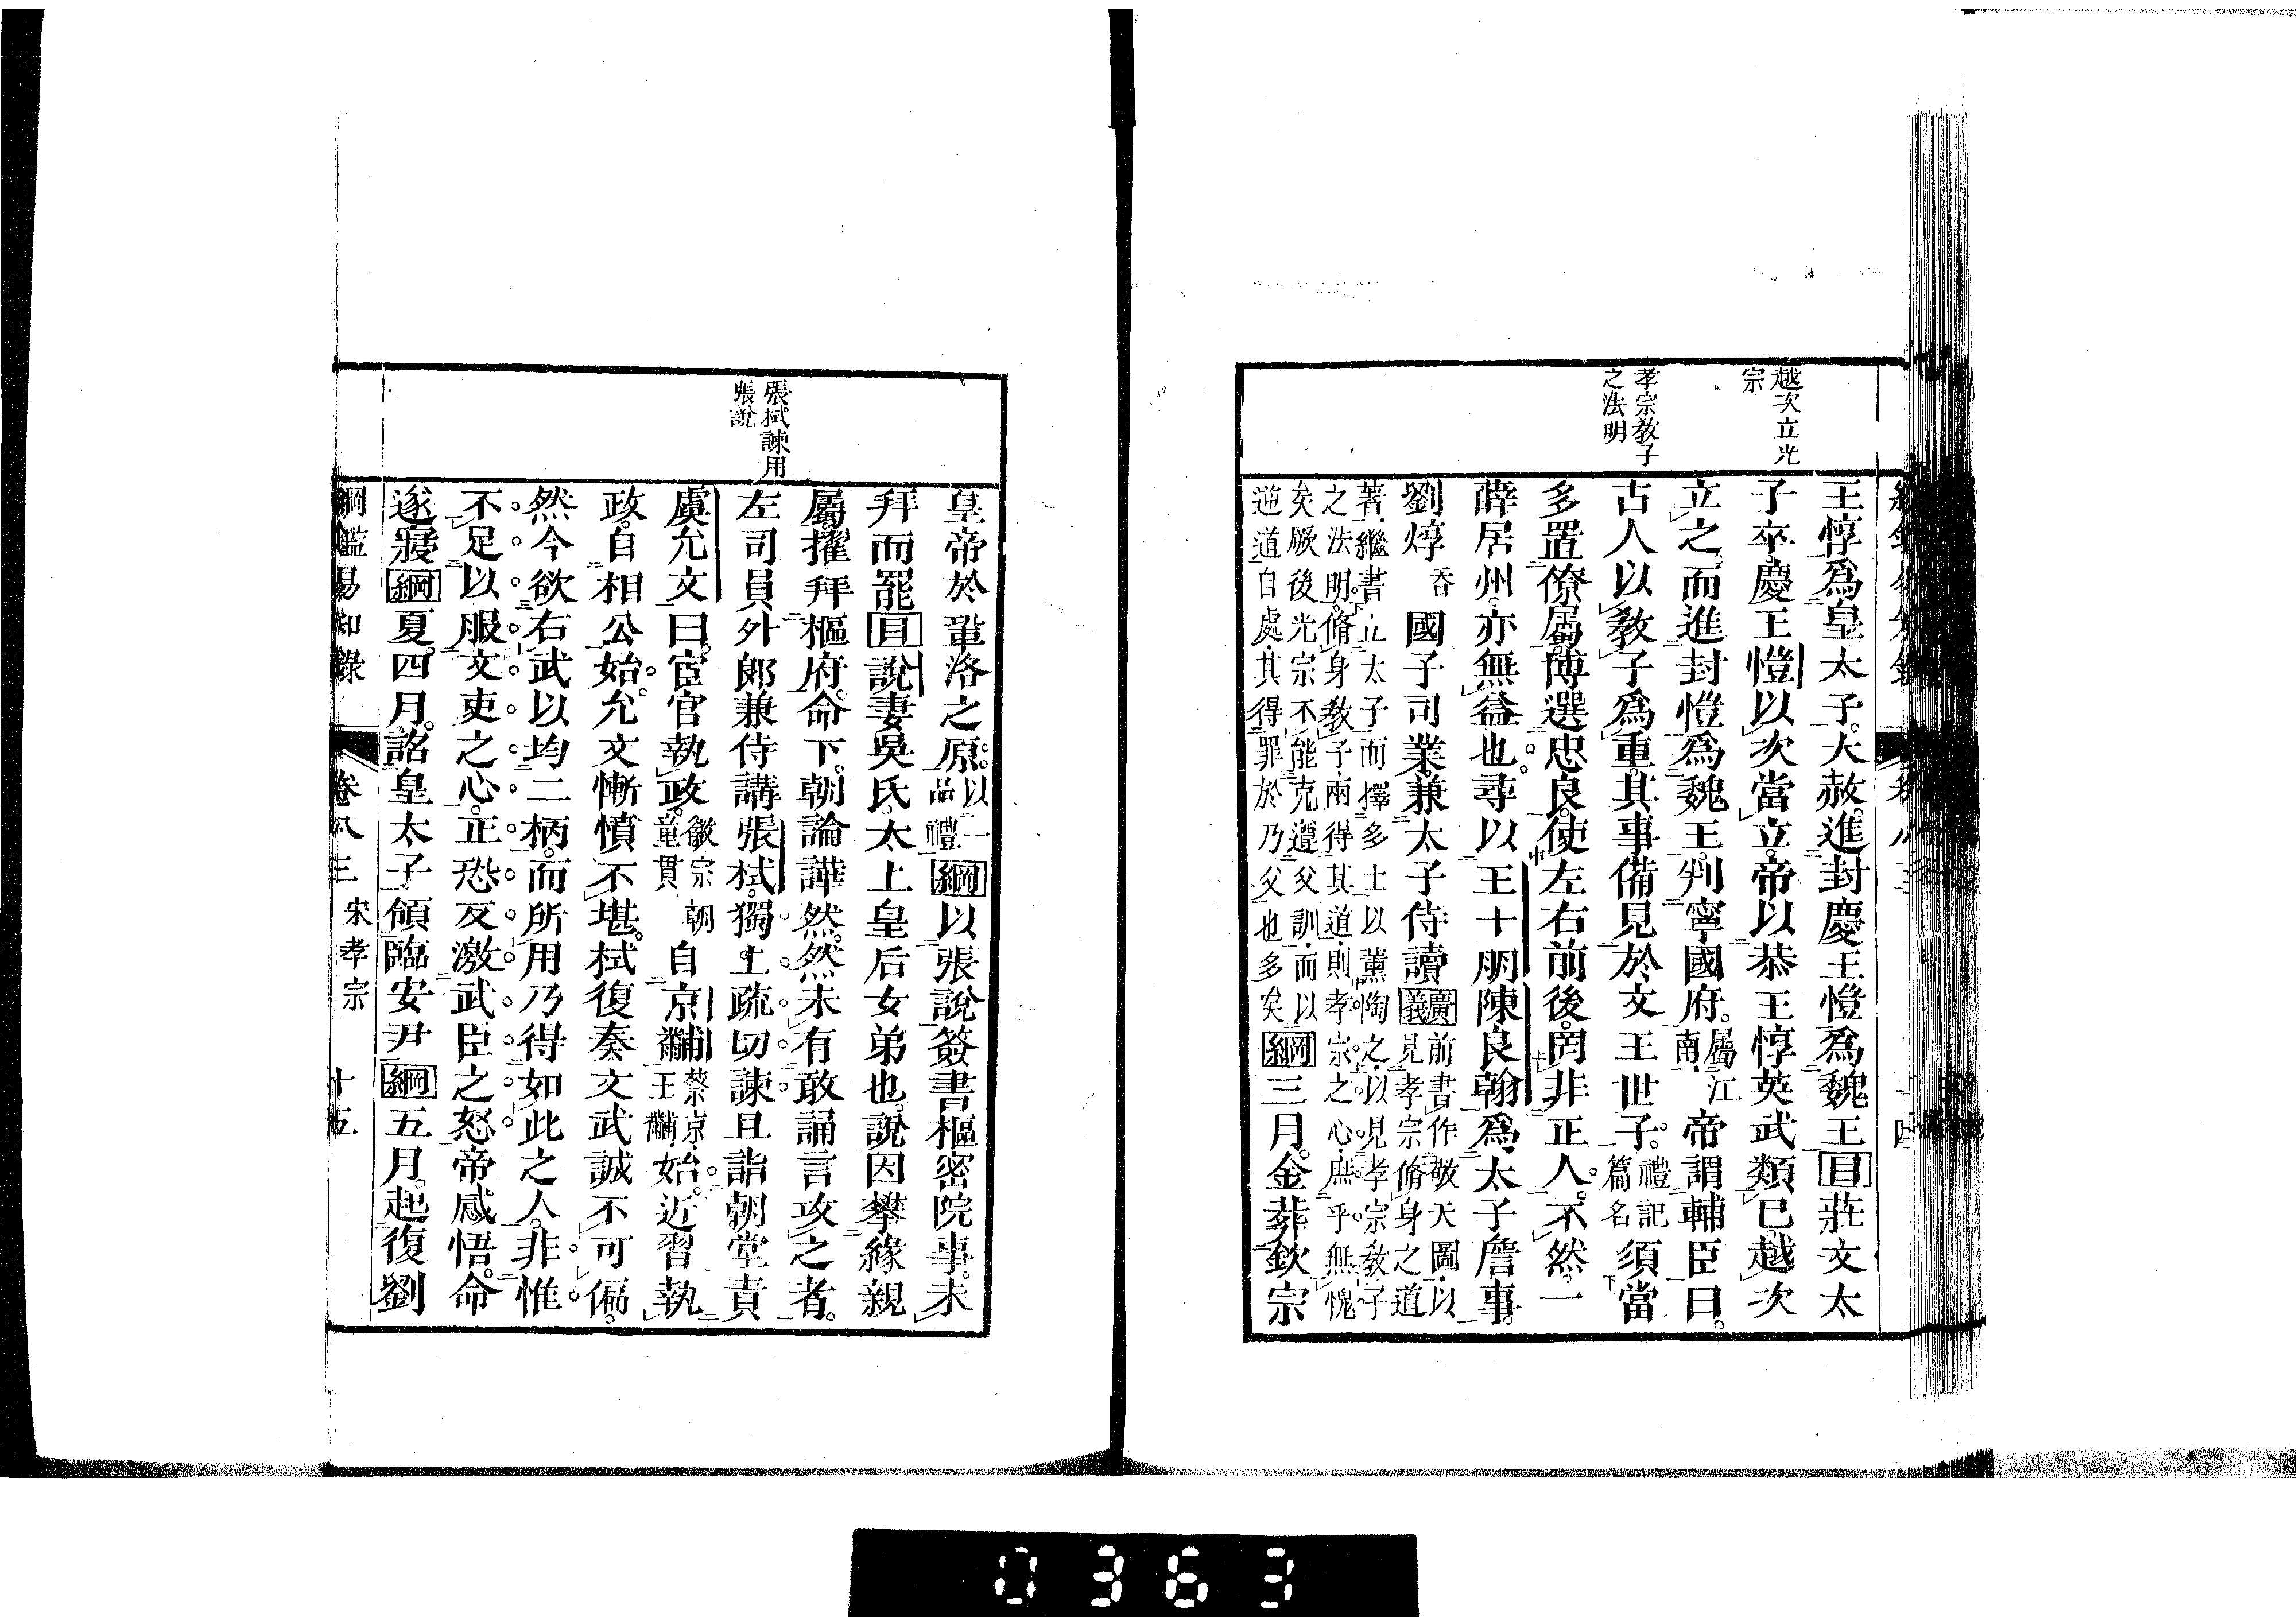 越次立光
宗
孝宗教子
之法明
王惇爲皇太子。大赦。進封慶王愷爲魏王目莊文太
子卒。慶王愷以次當立。帝以恭王惇英武類已。越次
立之。而進封愷爲魏王。判寧國府。屬江南。帝謂輔臣曰。
古人以教子爲重。其事備見於文王世子。禮記篇名須當
多置僚屬。博選忠良。使左右前後。罔非正人。不然。一
薛居州。亦無益也。尋以王十朋陳良翰爲太子詹事。
劉焞吞國子司業。兼太子侍讀廣義前書作敬天圖以見孝宗脩身之道
著繼書立太子而擇多士以薰陶之以見孝宗教子
之法明。脩身教子兩得其道則孝宗之心庶乎無愧
矣厥後光宗不能克遵父訓而以
逆道自處其得罪於乃父也多矣綱三月。金葬欽宗
張栻諫用
張說
皇帝於鞏洛之原。以一品禮綱以張說簽書樞密院事。未
拜而罷目說妻吳氏。太上皇后女弟也。說因攀緣親
屬。擢拜樞府。命下。朝論譁然。然未有敢誦言攻之者。
左司員外郎兼侍講張栻。獨上疏切諫。且詣朝堂責
虞允文曰。宦官執政。徽宗朝童貫自京黼蔡京王黼始。近習執
政。自相公始。允文慚憤不堪。栻復奏文武誠不可偏。
然今欲右武以均二柄。而所用乃得如此之人。非惟
不足以服文吏之心。正恐反激武臣之怒。帝感悟。命
遂寢綱夏四月。詔皇太子領臨安尹綱五月。起復劉
綱鑑易知錄 卷八三 宋孝宗 十五
0363